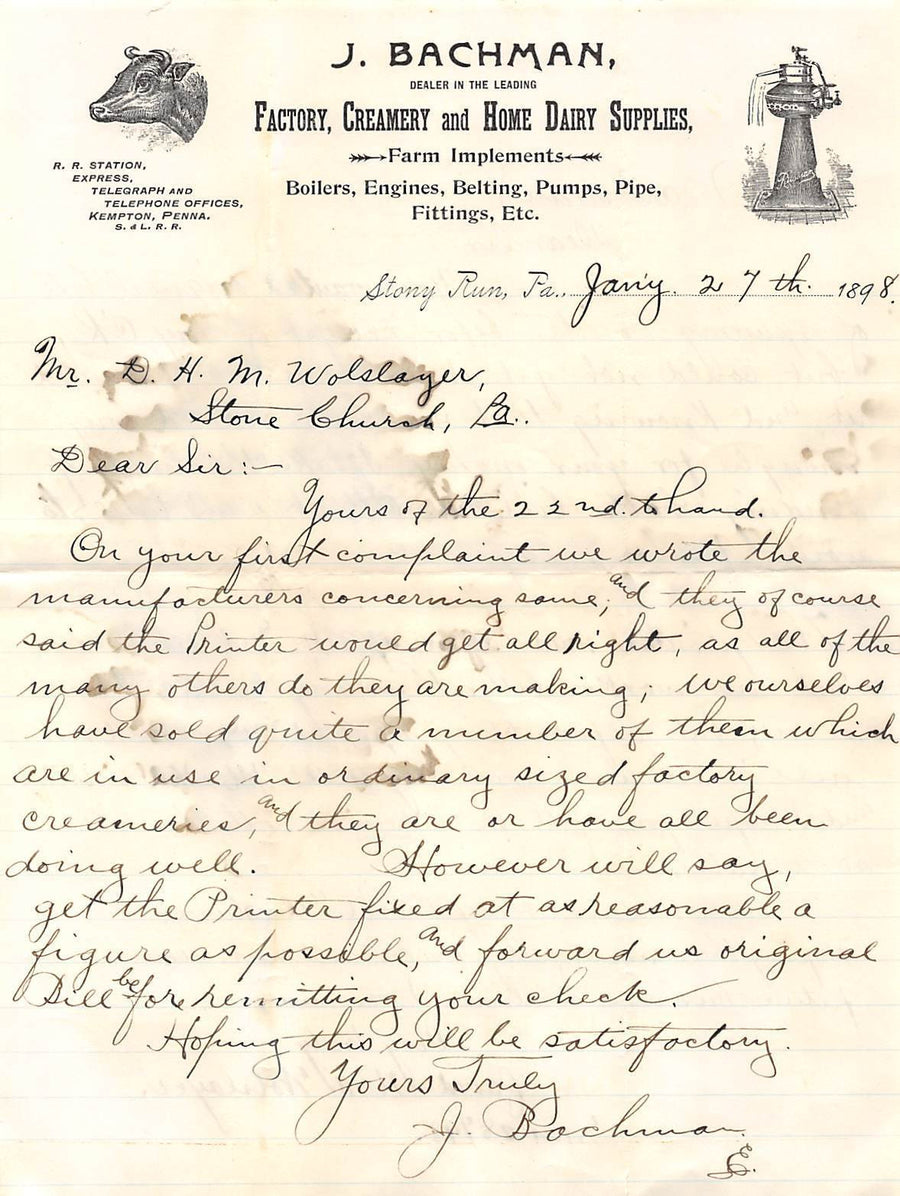 J. BACHMAN,
DEALER IN THE LEADING
FACTORY, CREAMERY and HOME DAIRY SUPPLIES,
Farm Implements
Boilers, Engines, Belting, Pumps, Pipe,
Fittings, Etc.
R. R. STATION,
EXPRESS,
TELEGRAPH AND
TELEPHONE OFFICES,
KEMPTON, PENNA.
S. & L. R. R.
Stony Run, Pa., Jan'y. 27th. 1898.
Mr. D. H. M. Wolslayer,
Stone Church, Pa..
Dear Sir:—
Yours of the 22nd. to hand.
On your first complaint we wrote the
manufacturers concerning same, and they of course
said the Printer would get all right, as all of the
many others do they are making; we ourselves
have sold quite a number of them which
are in use in ordinary sized factory
creameries, and they are or have all been
doing well. However will say,
get the Printer fixed at as reasonable a
figure as possible, and forward us original
Bill before remitting your check.
Hoping this will be satisfactory.
Yours Truly
J. Bachman
E.